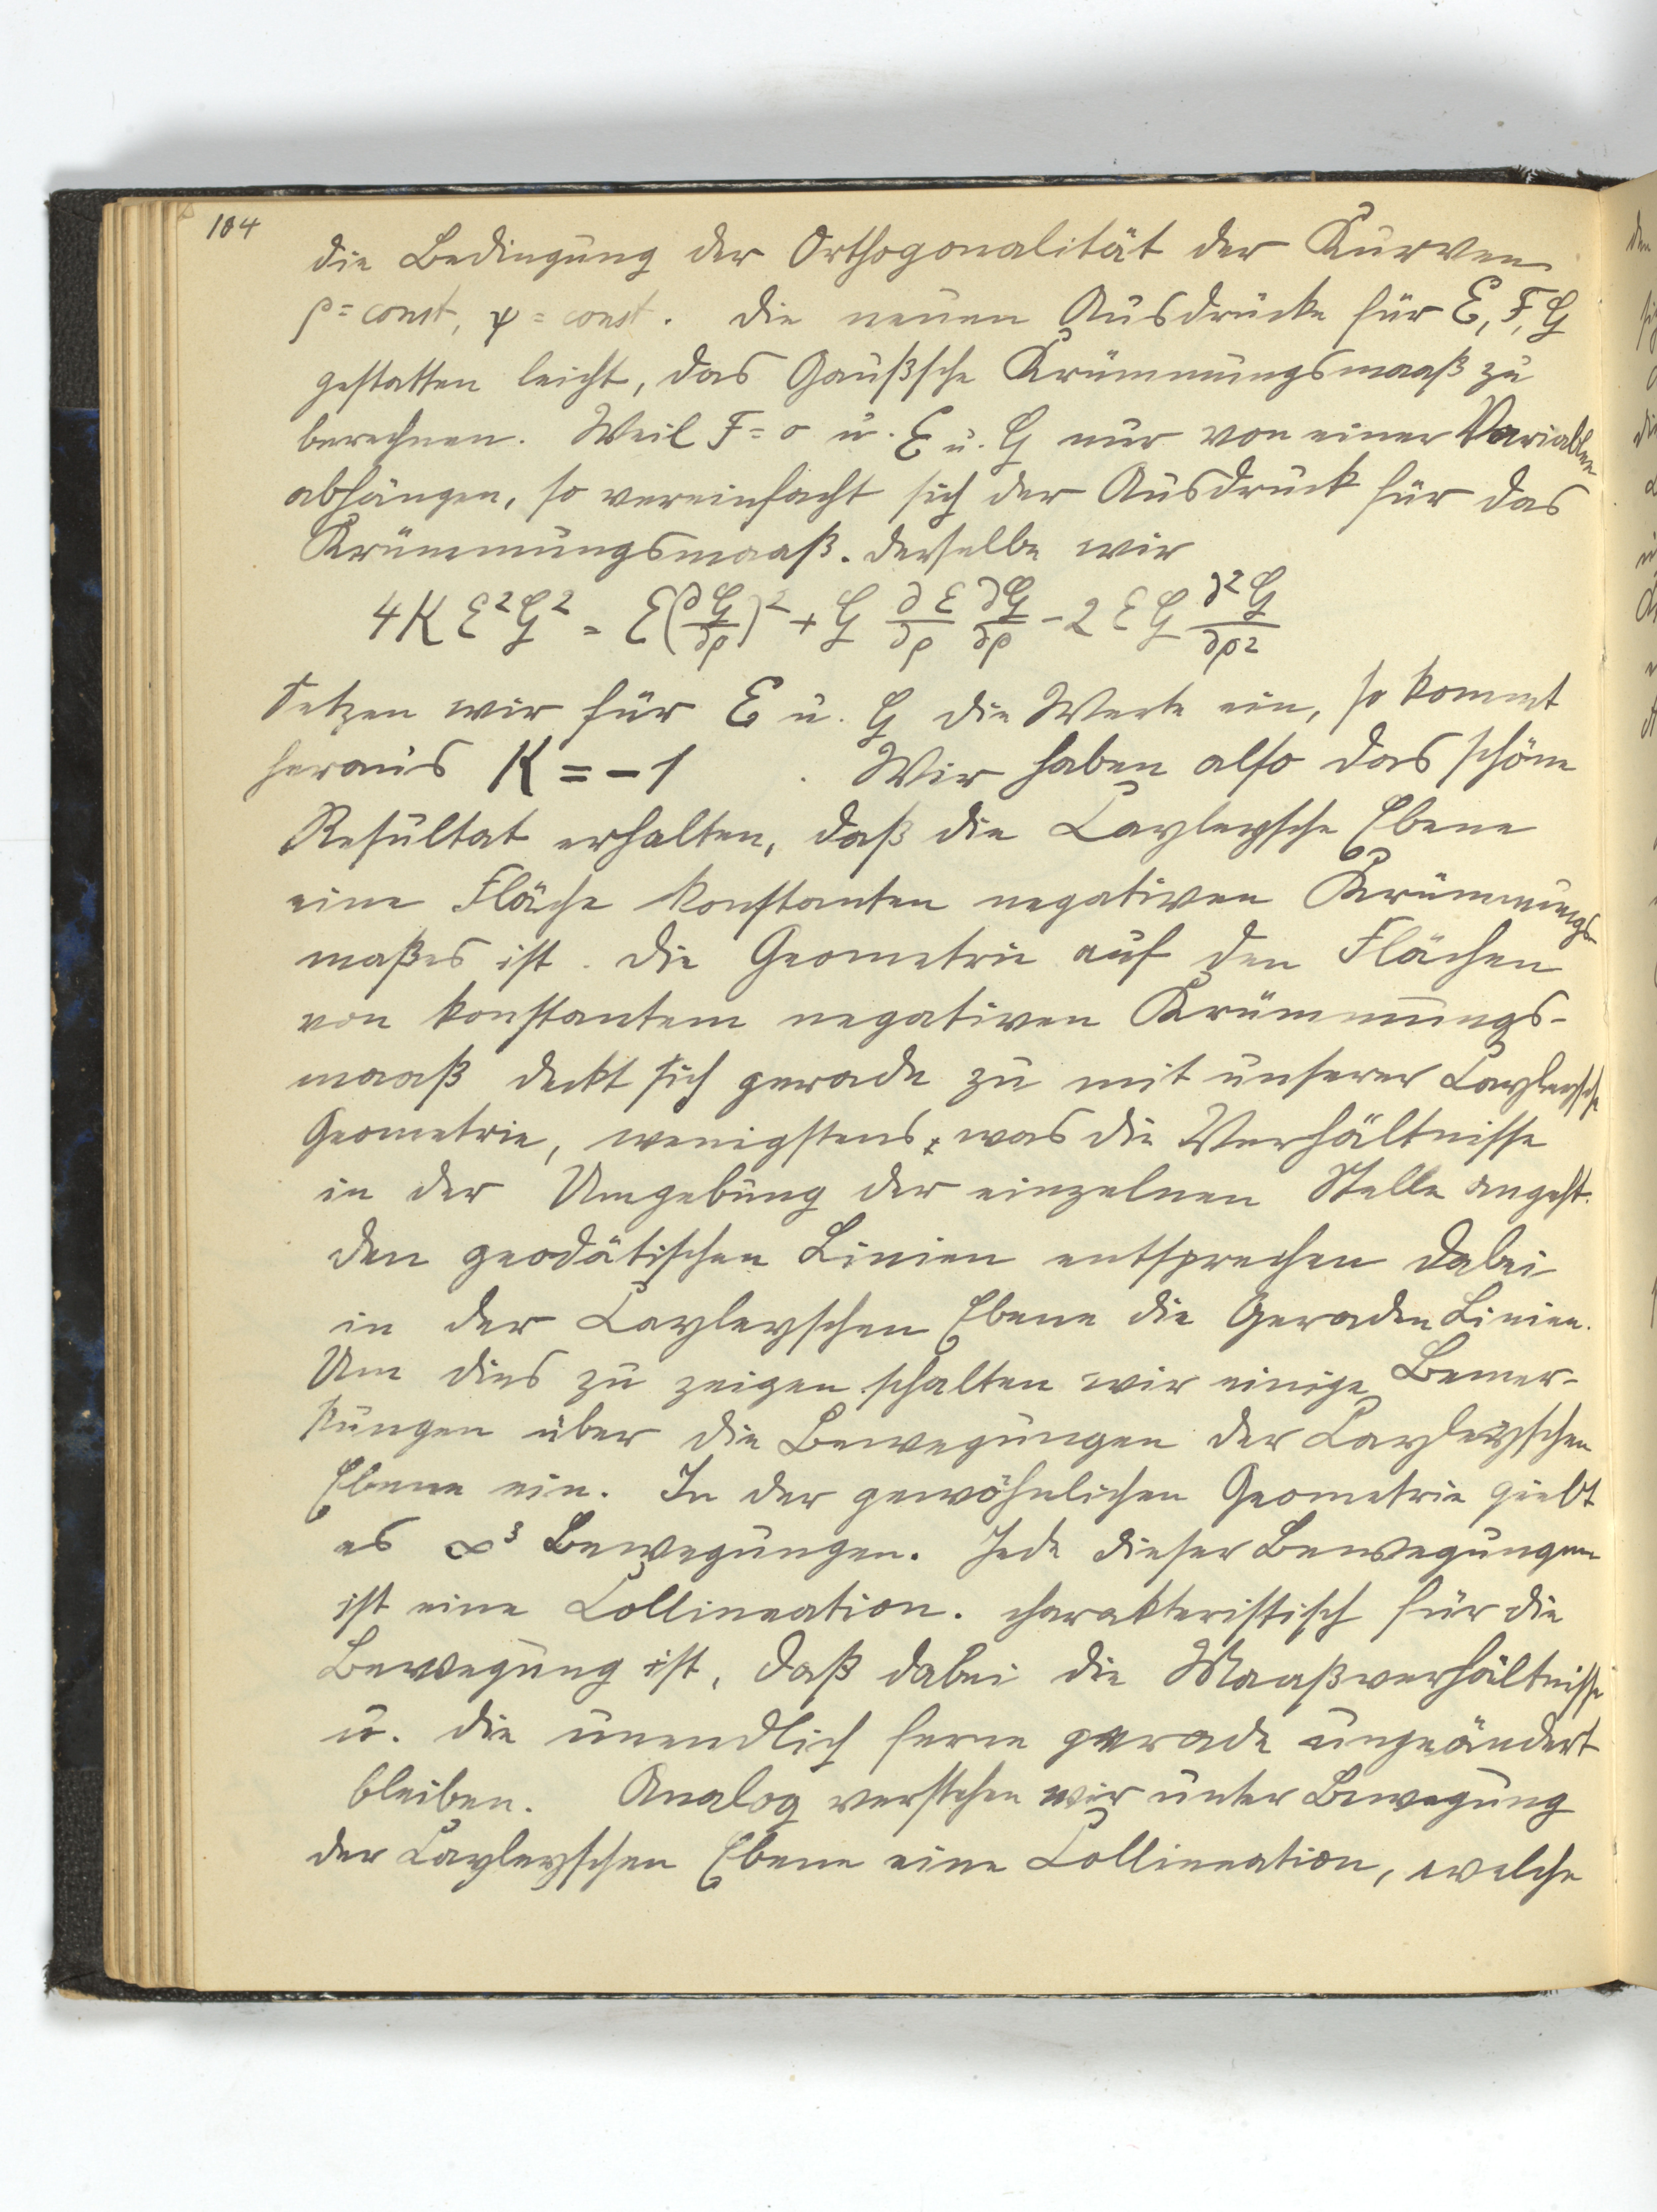 104
die Bedingung der Orthogonalität der Kurven
ρ = const, ψ = const. die neuen Ausdrücke für E, F, G
gestatten leicht, das Gaußsche Krümmungsmaaß zu
berechnen. Weil F = 0 u. E u. G nur von einer Variablen
abhängen, so vereinfacht sich der Ausdruck für das
Krümmungsmaaß. derselbe wir
4K E²G² = E(∂G/∂ρ)² + G ∂E/∂ρ ∂G/∂ρ - 2 E G ∂²G/∂ρ²
Setzen wir für E u. G die Werte ein, so kommt
heraus K = - 1 . Wir haben also das schöne
Resultat erhalten, daß die Cayleysche Ebene
eine Fläche konstanten negativen Krümmungs-
maßes ist. die Geometrie auf den Flächen
von konstantem negativen Krümmungs-
maaß deckt sich gerade zu mit unserer Cayleysche
Geometrie, wenigstens, was die Verhältnisse
in der Umgebung der einzelnen Stelle angeht.
den geodätischen Linien entsprechen dabei
in der Cayleyschen Ebene die Geraden Linien.
Um dies zu zeigen schalten wir einige Bemer-
kungen über die Bewegungen der Cayleyschen
Ebene ein. In der gewöhnlichen Geometrie giebt
es ∞³ Bewegungen. Jede dieser Bewegungen
ist eine Collineation. charakteristisch für die
Bewegung ist, daß dabei die Maaßverhältnisse
u. die unendlich ferne gerade ungeändert
bleiben. Analog verstehen wir unter Bewegung
der Cayleyschen Ebene eine Collineation, welche